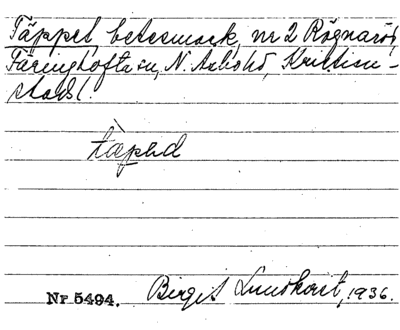 Täppet, betesmark, nr 2 Rögnaröd,
Färinghofta sn, N. Åsbohd, Kristian-
stads l.
tàpəd
Nr 5494. Birgit Lundkvist, 1936.